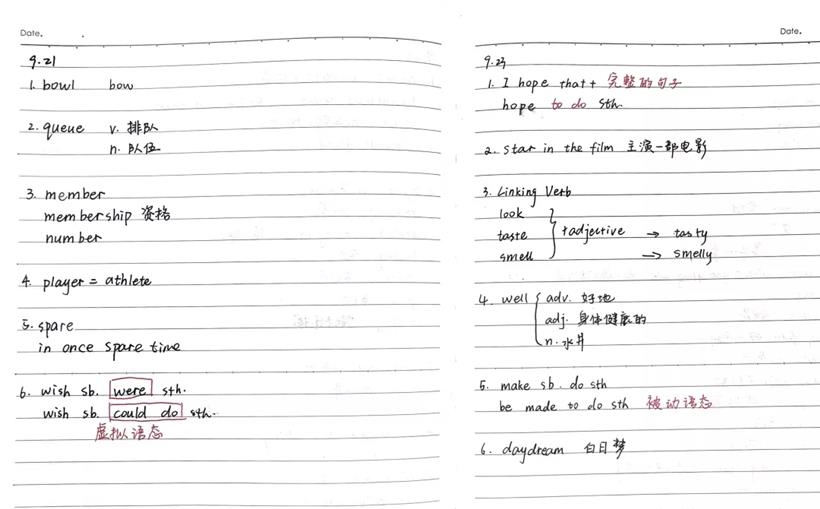 Date.
9.21
1. bowl bow
2. queue v. 排队
n. 队伍
3. member
membership 资格
number
4. player = athlete
5. spare
in once spare time
6. wish sb. were sth.
wish sb. could do sth.
虚拟语态
Date.
9.23
1. I hope that + 完整的句子
hope to do sth.
2. star in the film 主演一部电影
3. Linking Verb
look
taste + adjective → tasty
smell → smelly
4. well adv. 好地
adj. 身体健康的
n. 水井
5. make sb. do sth
be made to do sth 被动语态
6. daydream 白日梦